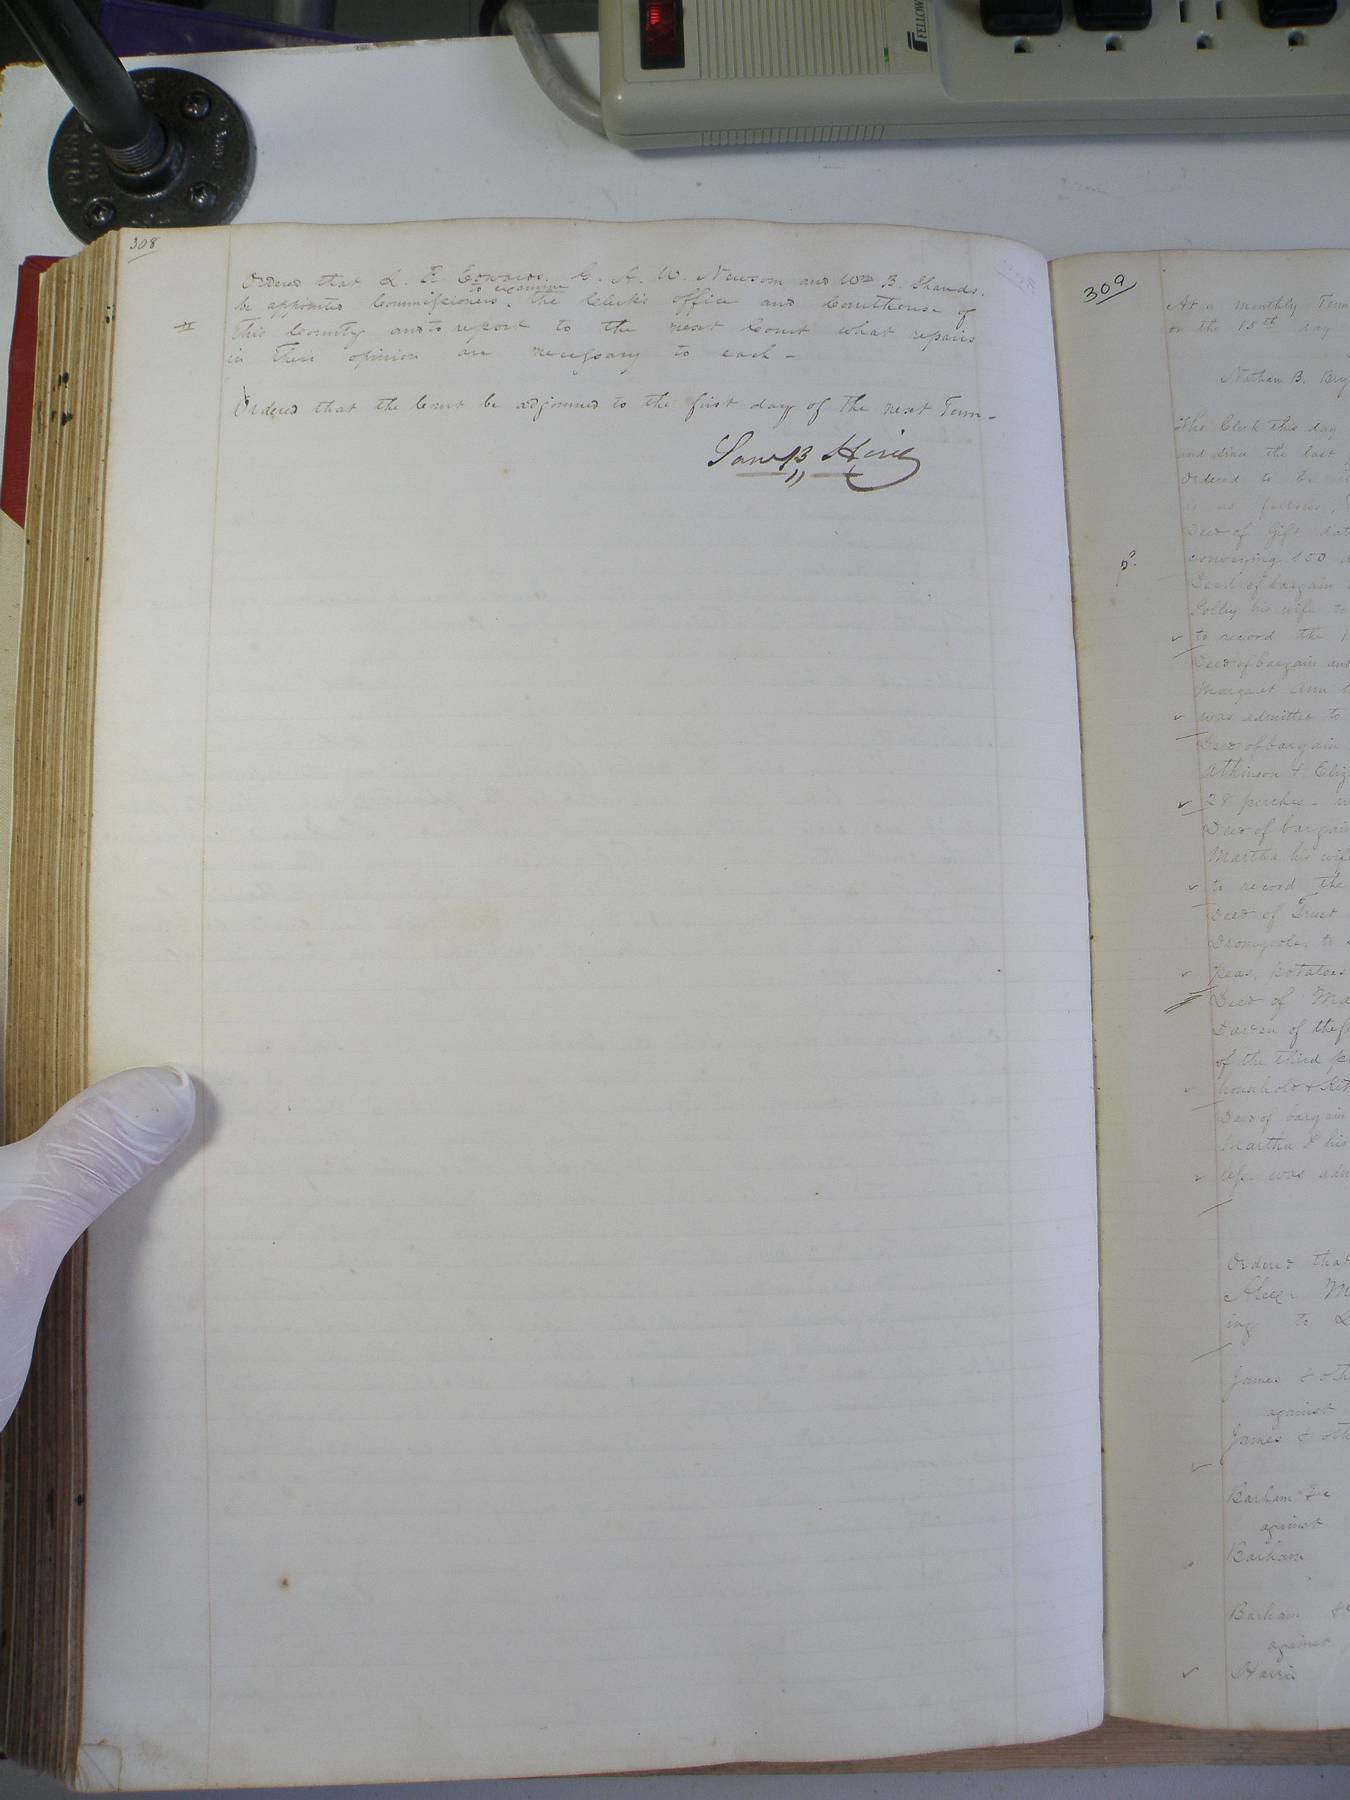 308
Ordered that L. E. Edwards, G. A. W. Newsom and Wm B. Shands.
be appointed Commissioners, to examine the Clerk's office and Courthouse of
this County and to report to the next Court what repairs
in their opinion are necessary to each -
Ordered that the Court be adjourned to the first day of the next Term -
Saml B Hines
309
At a monthly Term
on the 15th day
Nathan B.
The Clerk this day
and since the last
Ordered to be
is as follows,
Deed of Gift
conveying 150
Deed of bargain
Polley his wife to
to record the
Deed of bargain and
Margaret Ann
was admitted to
Deed of bargain
Atkinson &
28 perches -
Deed of bargain
Martha his wife
to record the
Deed of Trust
to
peas, potatoes
Deed of
Darden of the
of the third
household &
Deed of bargain
Martha his
was
Ordered that
ing to
James &
against
James &
Barham &c
against
Barham
Barham
against
Harris
FELLOW